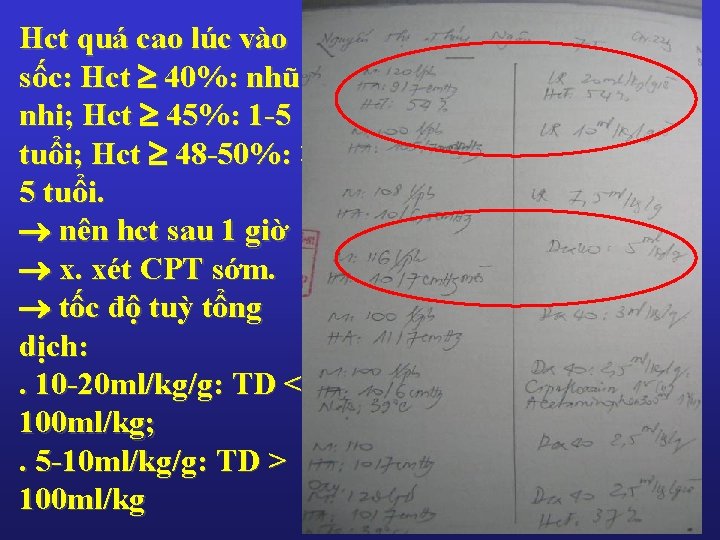 Hct quá cao lúc vào
sốc: Hct ≥ 40%: nhũ
nhi; Hct ≥ 45%: 1-5
tuổi; Hct ≥ 48-50%:
5 tuổi.
→ nên hct sau 1 giờ
→ x. xét CPT sớm.
→ tốc độ tuỳ tổng
dịch:
. 10-20ml/kg/g: TD <
100ml/kg;
. 5-10ml/kg/g: TD >
100ml/kg
Nguyễn Thị Ngân
M: 120 l/ph
HA: 9/7 cmHg
Hct: 54%
M: 100 l/ph
M: 108 l/ph
HA: 10/
116 l/ph
HA: 10/7 cmHg
M: 100 l/ph
HA: 11/7 cmHg
M: 100 l/ph
HA: 10/6 cmHg
39°C
M: 110
HA: 10/7 cmHg
M: 120 l/ph
HA: 10/7 cmHg
39°C
LR 20 ml/kg/giờ
Hct: 54%
LR 10 ml/kg/g
LR 7,5 ml/kg/g
Dex 40: 5 ml/kg/g
Dex 40: 3 ml/kg/g
Dex 40: 2,5 ml/kg/g
Dex 40 2,5 ml/kg/g
Dex 40 2,5 ml/kg/giờ
Hct: 37%